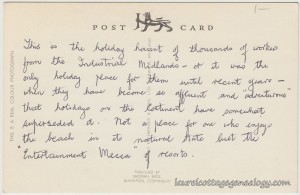 POST CARD
This is the holiday haunt of thousands of workers
from the Industrial Midlands – or it was the
only holiday place for them until recent years –
when they have become so affluent and adventurous
that holidays on the Continent have somewhat
superseded it. Not a place for one who enjoys
the beach in its natural state but the
"Entertainment Mecca" of resorts.
THIS IS A REAL COLOUR PHOTOGRAPH
PUBLISHED BY
laurelcottagegenealogy.com